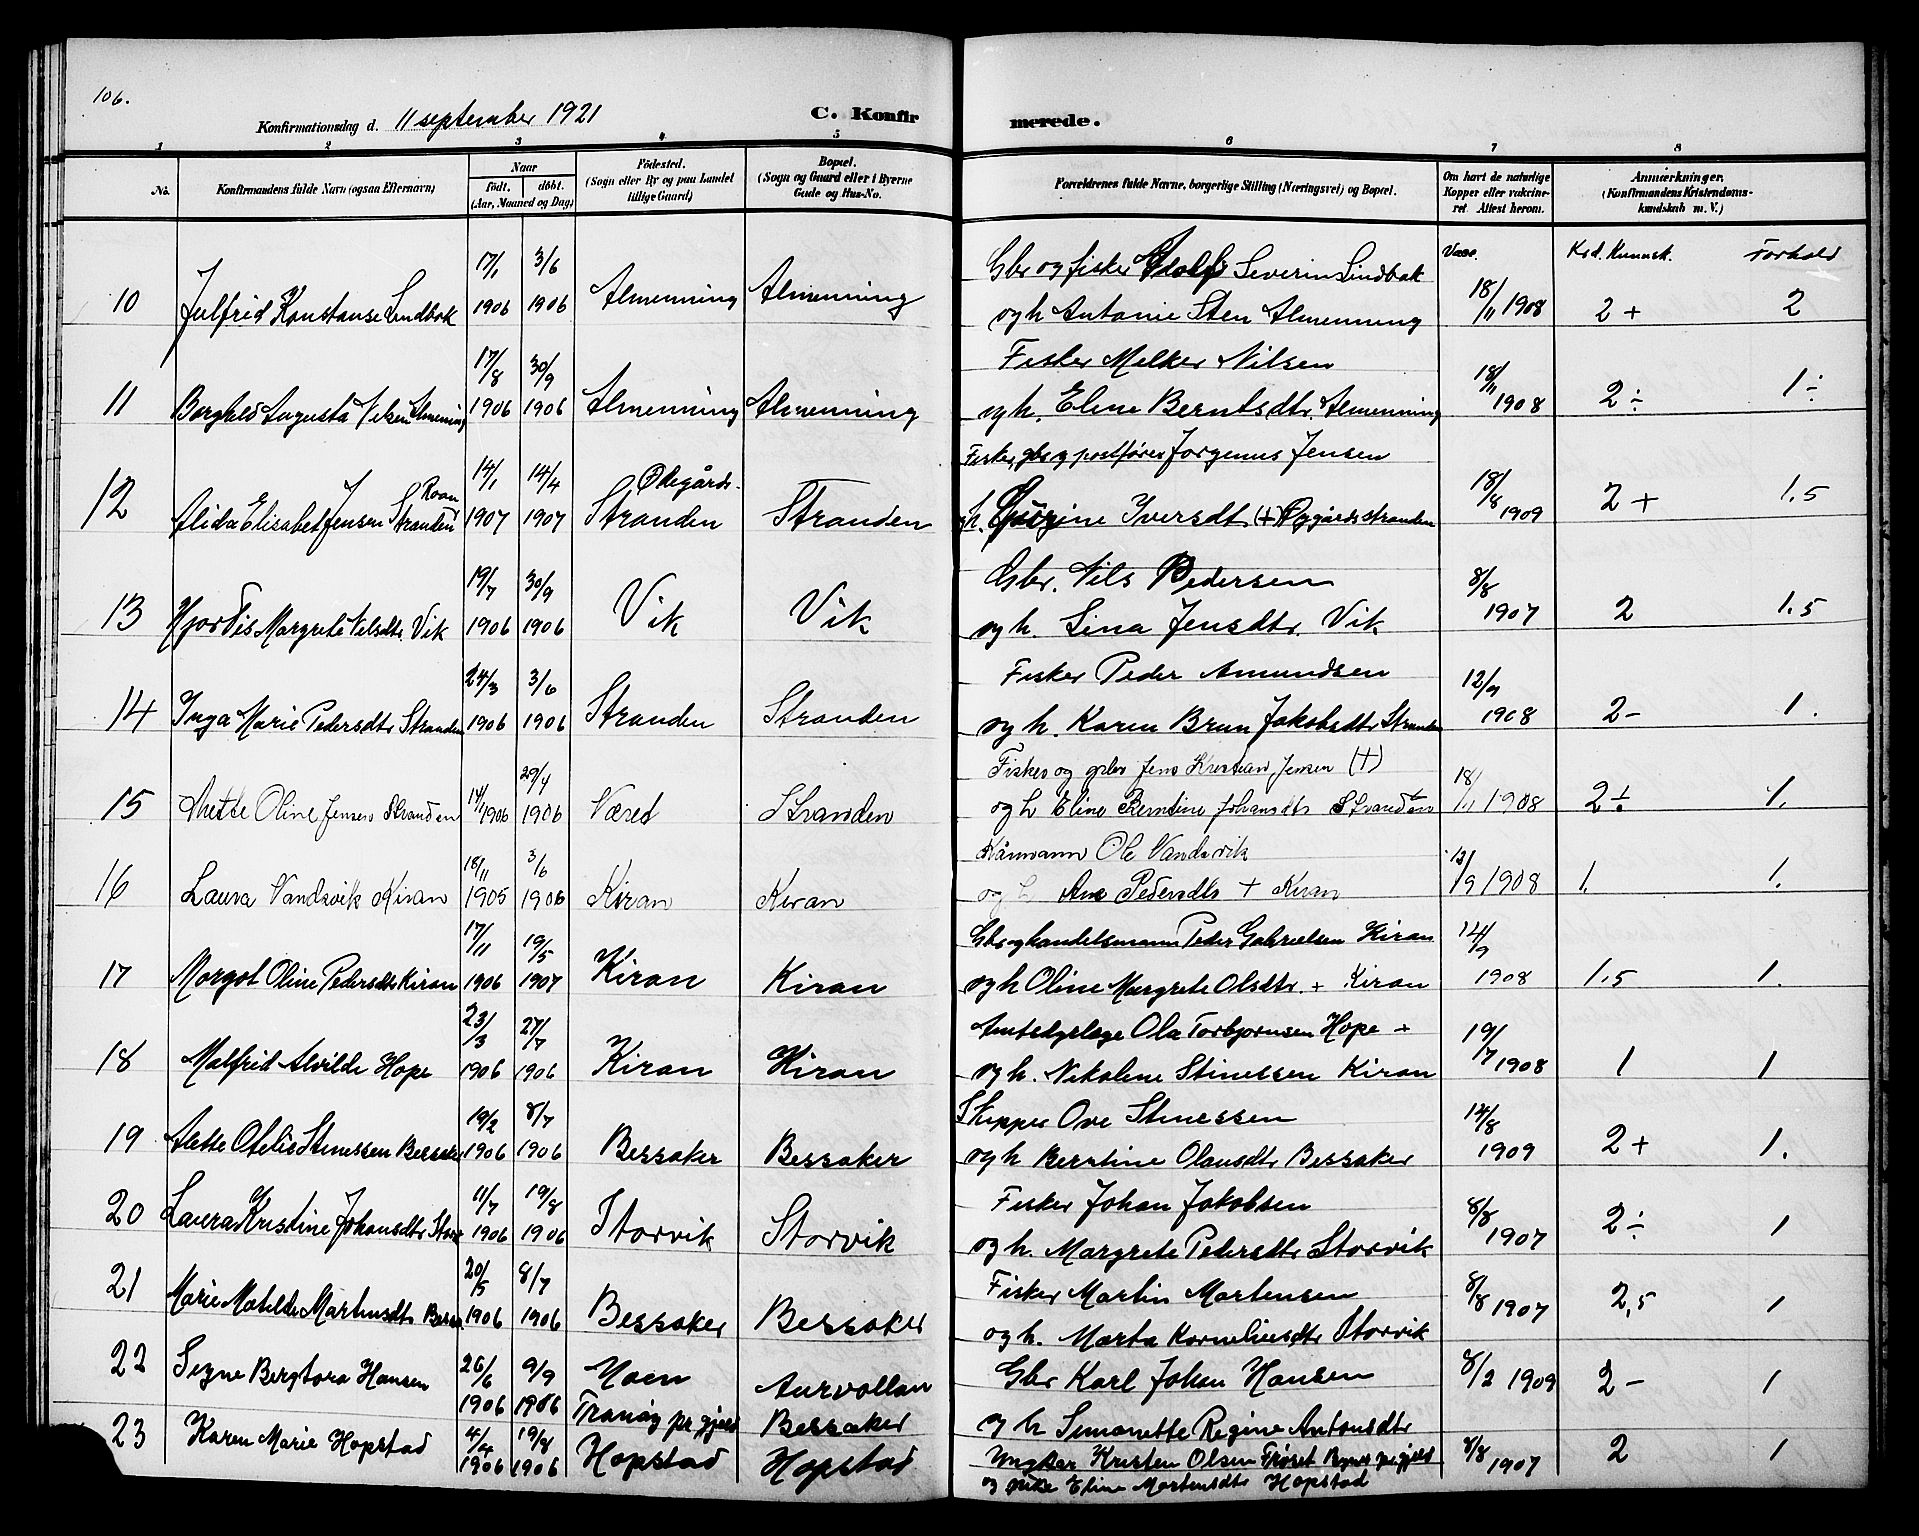 106.
Konfirmationsdag d. 11 september 1921
C. Konfirmerede.
1 2 3 4 5 6 7 8
No.
Konfirmandens fulde Navn (ogsaa Efternavn)
Naar
födt. döbt.
(Aar, Maaned og Dag)
Födested.
(Sogn eller By og paa Landet
tillige Gaard)
Bopæl.
(Sogn og Gaard eller i Byerne
Gade og Hus-No.
Forældrenes fulde Navne, borgerlige Stilling (Næringsvei) og Bopæl.
Om havt de naturlige
Kopper eller vakcine-
ret. Attest herom.
Anmærkninger.
(Konfirmandens Kristendoms-
kundskab m. V.)
Vacc. Krd. Kunnsk. Forhold
17/1 3/6 Gbr og fisker Adolf Severin Lindbak
10 Julfrid Konstanse Lindbak 1906 1906 Almenning Almenning og h Antonie Sten Almenning 18/11 1908 2+ 2
17/8 30/9 Fisker Melker Nilsen
11 Borghild Augusta Nilsen Almenning 1906 1906 Almenning Almenning og h. Eline Berntsdtr. Almenning 18/11 1908 2÷ 1÷
14/1 14/4 Ødegårds- Fisker, gbr og postfører Jørgenus Jensen
12 Alida Elisabet Jensen Stranden Roan 1907 1907 Stranden Stranden og h. Iversdtr (+) Øygårdsstranden 18/8 1909 2+ 1.5
19/7 30/9 Gbr. Nils Pedersen
13 Hjørdis Margrete Nilsdtr. Vik 1906 1906 Vik Vik og h. Lina Jensdtr. Vik 8/8 1907 2 1.5
24/3 3/6 Fisker Peder Amundsen
14 Inga Marie Pedersdtr Stranden 1906 1906 Stranden Stranden og h. Karen Brun Jakobsdtr Stranden 12/9 1908 2- 1.
29/4 Fisker og gbr Jens Kristian Jensen (+)
15 Anette Oline Jensen Stranden 14/1 1906 1906 Været Stranden og h Eline Berntine Johansdtr Stranden 18/11 1908 2÷ 1.
18/11 3/6 Kårmann Ole Vandsvik
16 Laura Vandsvik Kiran 1905 1906 Kiran Kiran og h Ane Pedersdtr + Kiran 12/9 1908 1. 1.
17/11 19/5 Gbr og handelsmann Peder Gabrielsen Kiran 14/9
17 Margot Oline Pedersdtr Kiran 1906 1907 Kiran Kiran og h Oline Margrete Olsdtr. + Kiran 1908 1,5 1.
23/3 27/7 Amtsdyrlæge Ola Torbjørnsen Hope +
18 Malfrid Alvilde Hope 1906 1906 Kiran Kiran og h. Nikoline Stinessen Kiran 19/7 1908 1 1
19/2 8/7 Skipper Ove Stinessen
19 Anette Otelie Stinessen Bessaker 1906 1906 Bessaker Bessaker og h Berntine Olausdtr Bessaker 14/8 1909 2+ 1.
11/7 19/8 Fisker Johan Jakobsen
20 Laura Kristine Johansdtr Storv 1906 1906 Storvik Storvik og h. Margrete Pedersdtr Storvik 8/8 1907 2÷ 1
20/5 8/7 Fisker Martin Mortensen
21 Marie Matilde Martinsdtr Bessa. 1906 1906 Bessaker Bessaker og h. Marta Korneliusdtr Storvik 8/8 1907 2,5 1
22 Signe Bergtora Hansen 26/6 1906 9/9 1906 Moen Tranöy pr.gjeld Aurvollan Bessaker Gbr Karl Johan Hansen 8/2 1909 2- 1
og h Simonette Regine Antonsdtr
23 Karen Marie Hopstad 4/4 1906 19/8 1906 Hopstad Hopstad Ungkar Kristen Olsen Frøset Bynes prgjeld 8/8 1907 2 1
og pike Eline Mortensdtr Hopstad